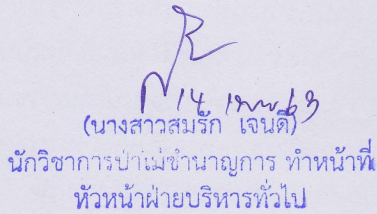 14 เมย 63
(นางสาวสมรัก เจนดี)
นักวิชาการป่าไม้ชำนาญการ ทำหน้าที่
หัวหน้าฝ่ายบริหารทั่วไป